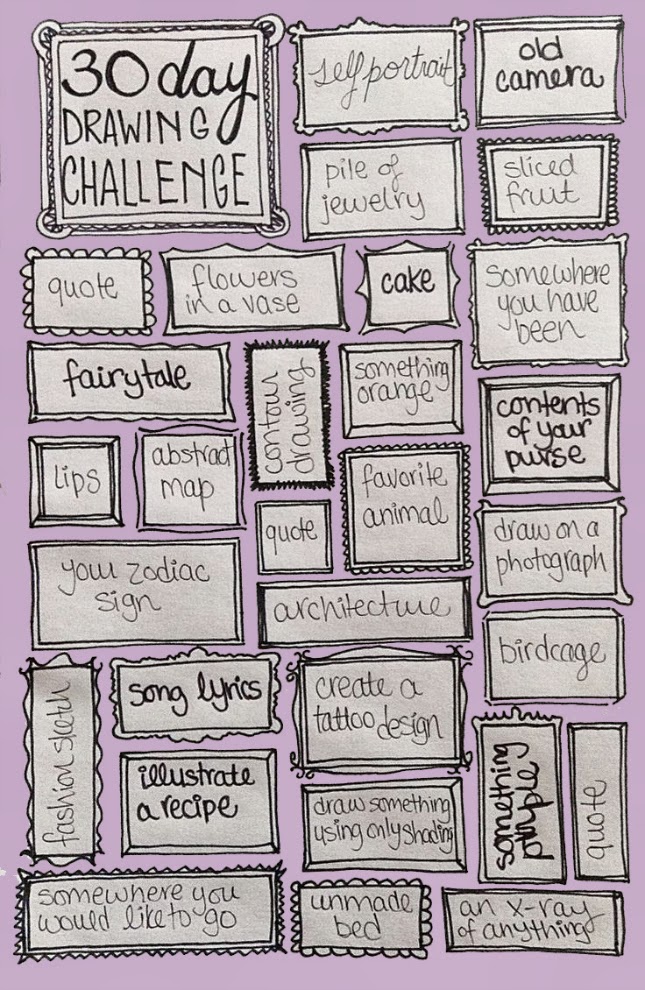 30 day
DRAWING
CHALLENGE
self portrait
old
camera
pile of
jewelry
sliced
fruit
quote
flowers
in a vase
cake
somewhere
you have
been
fairytale
contour
drawing
something
orange
contents
of your
purse
lips
abstract
map
favorite
animal
quote
draw on a
photograph
your zodiac
sign
architecture
birdcage
fashion sketch
song lyrics
create a
tattoo design
something
purple
quote
illustrate
a recipe
draw something
using only shading
somewhere you
would like to go
unmade
bed
an x-ray
of anything